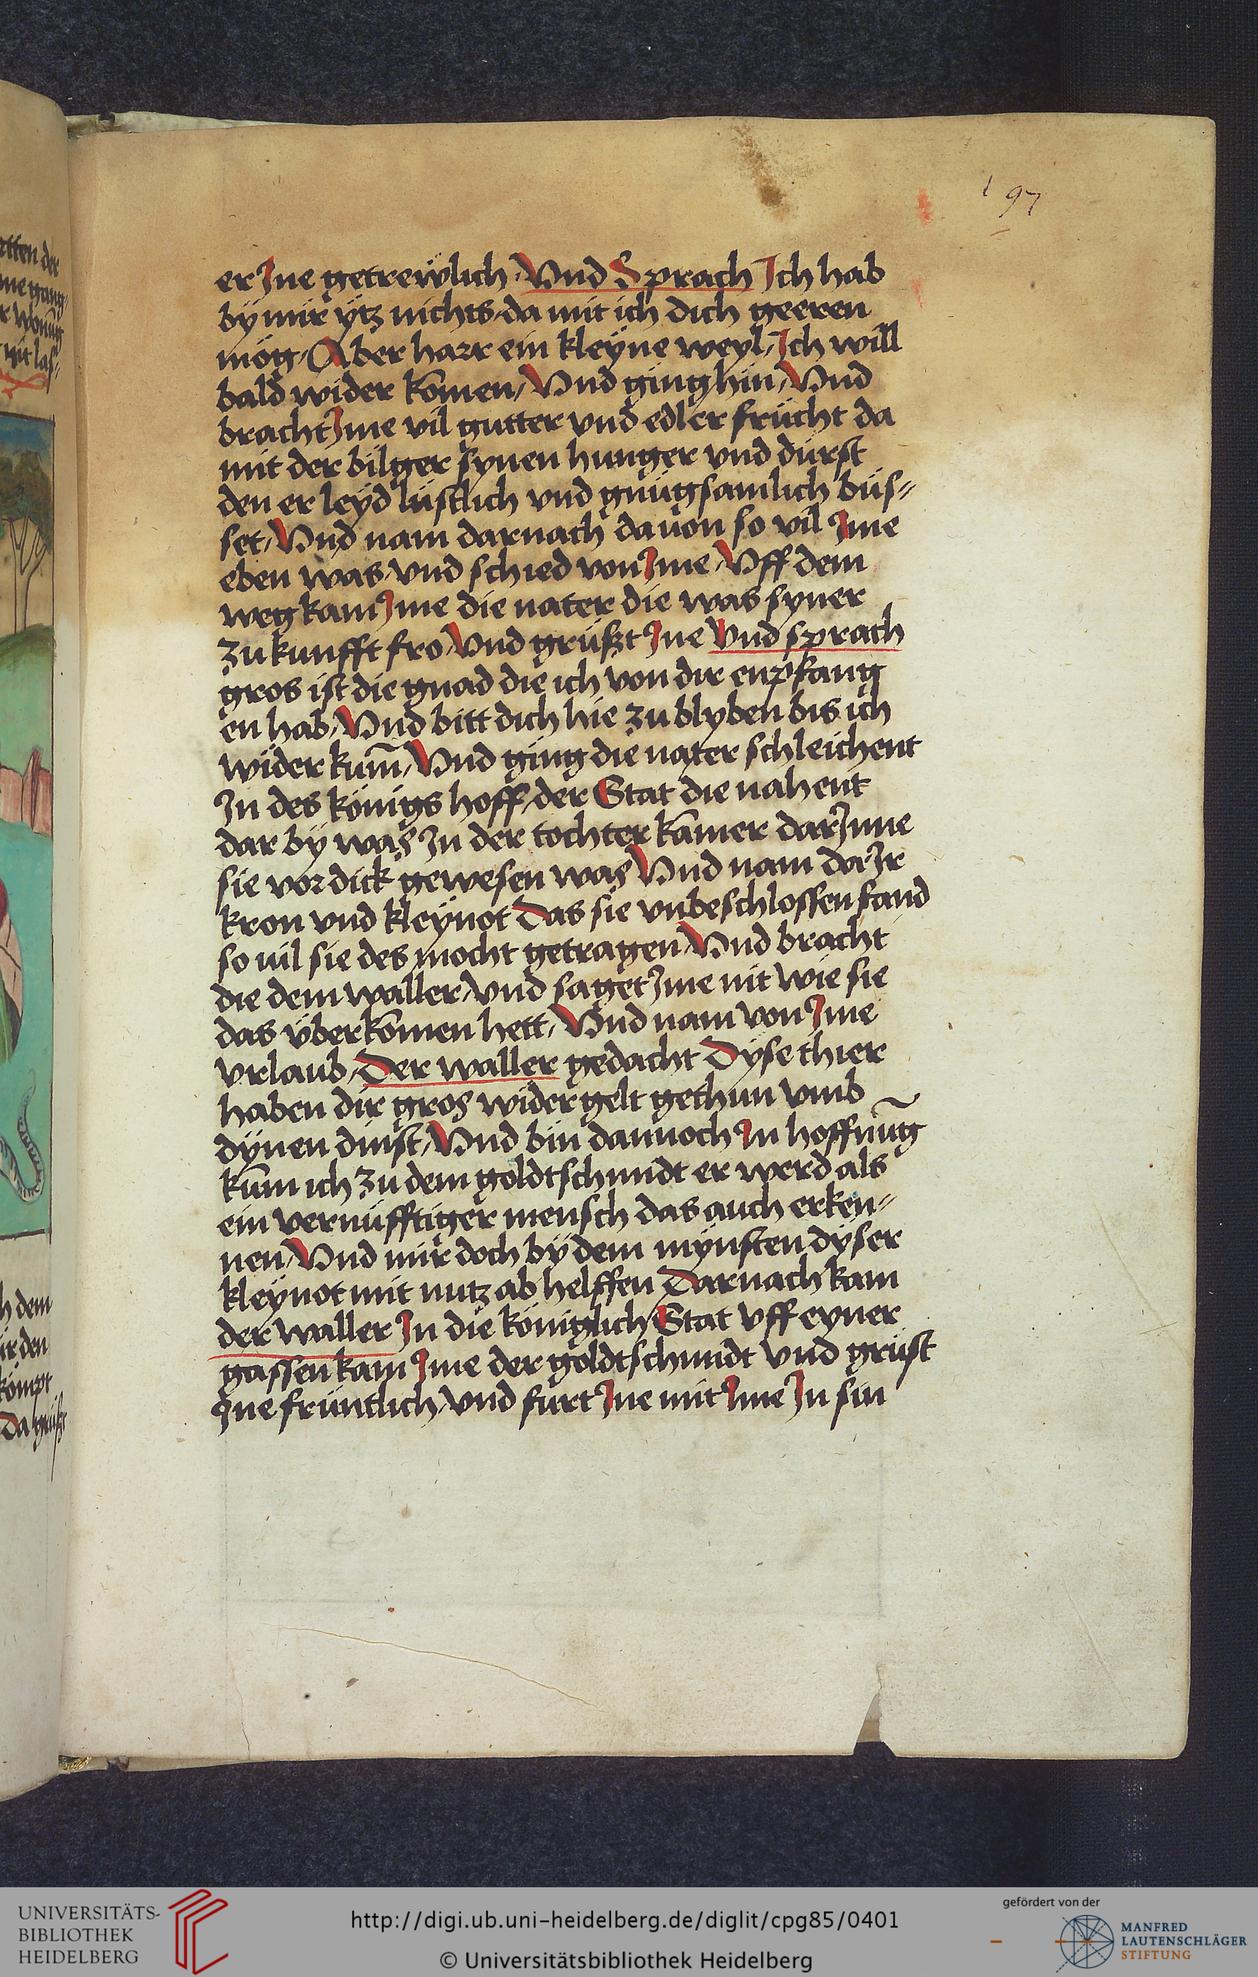 197
er Ine getrewlich / Vnd Sprach Ich hab
by mir ytz nichts da mit ich dich geeren
mög / Aber harr ein kleyne weyl / Ich will
bald wider komen / Vnd ging hin / Vnd
bracht Ime vil gutter vnd edler frücht da
mit der bilger synen hunger vnd dürst
den er leyd lüstlich vnd gnügsamlich büs=
set / Vnd nam darnach dauon so vil Ime
eben was / vnd schied von Ime / Vff dem
weg kam Ime die nater die was syner
zu kunfft fro / Vnd grüszt Ine Vnd sprach
gros ist die gnad die ich von dir enpfang
en hab / Vnd bitt dich hie zu blyben bis ich
wider kum̄ / Vnd ging die nater schleichent
In des königs hoff / der Stat die nahent
dar by was In der tochter kamer dar Inne
sie vor dick gewesen was Vnd nam da Ir
kron vnd kleynot Das sie vnbeschlossen fand
so uil sie des mocht getragen / Vnd bracht
die dem waller / vnd saget Ime nit wie sie
das überkomen hett / Vnd nam von Ime
vrlaub / Der waller gedacht Dyse thier
haben dir gros wider gelt gethun vmb
dynen dinst / Vnd bin dannoch In hoffnūg
kum ich zu dem goldtschmidt er werd als
ein vernüfftiger mensch das auch erken=
nen / Vnd mir doch by dem mynsten dyser
kleynot mit nutz ab helffen Darnach kam
der waller In die königlich Stat Vff eyner
gassen kam Ime der goldtschmidt vnd grüst
Ine früntlich / vnd fürt Ine mit Ime In sin
UNIVERSITÄTS-
BIBLIOTHEK
HEIDELBERG
http://digi.ub.uni-heidelberg.de/diglit/cpg85/0401
© Universitätsbibliothek Heidelberg
gefördert von der
MANFRED
LAUTENSCHLÄGER
STIFTUNG